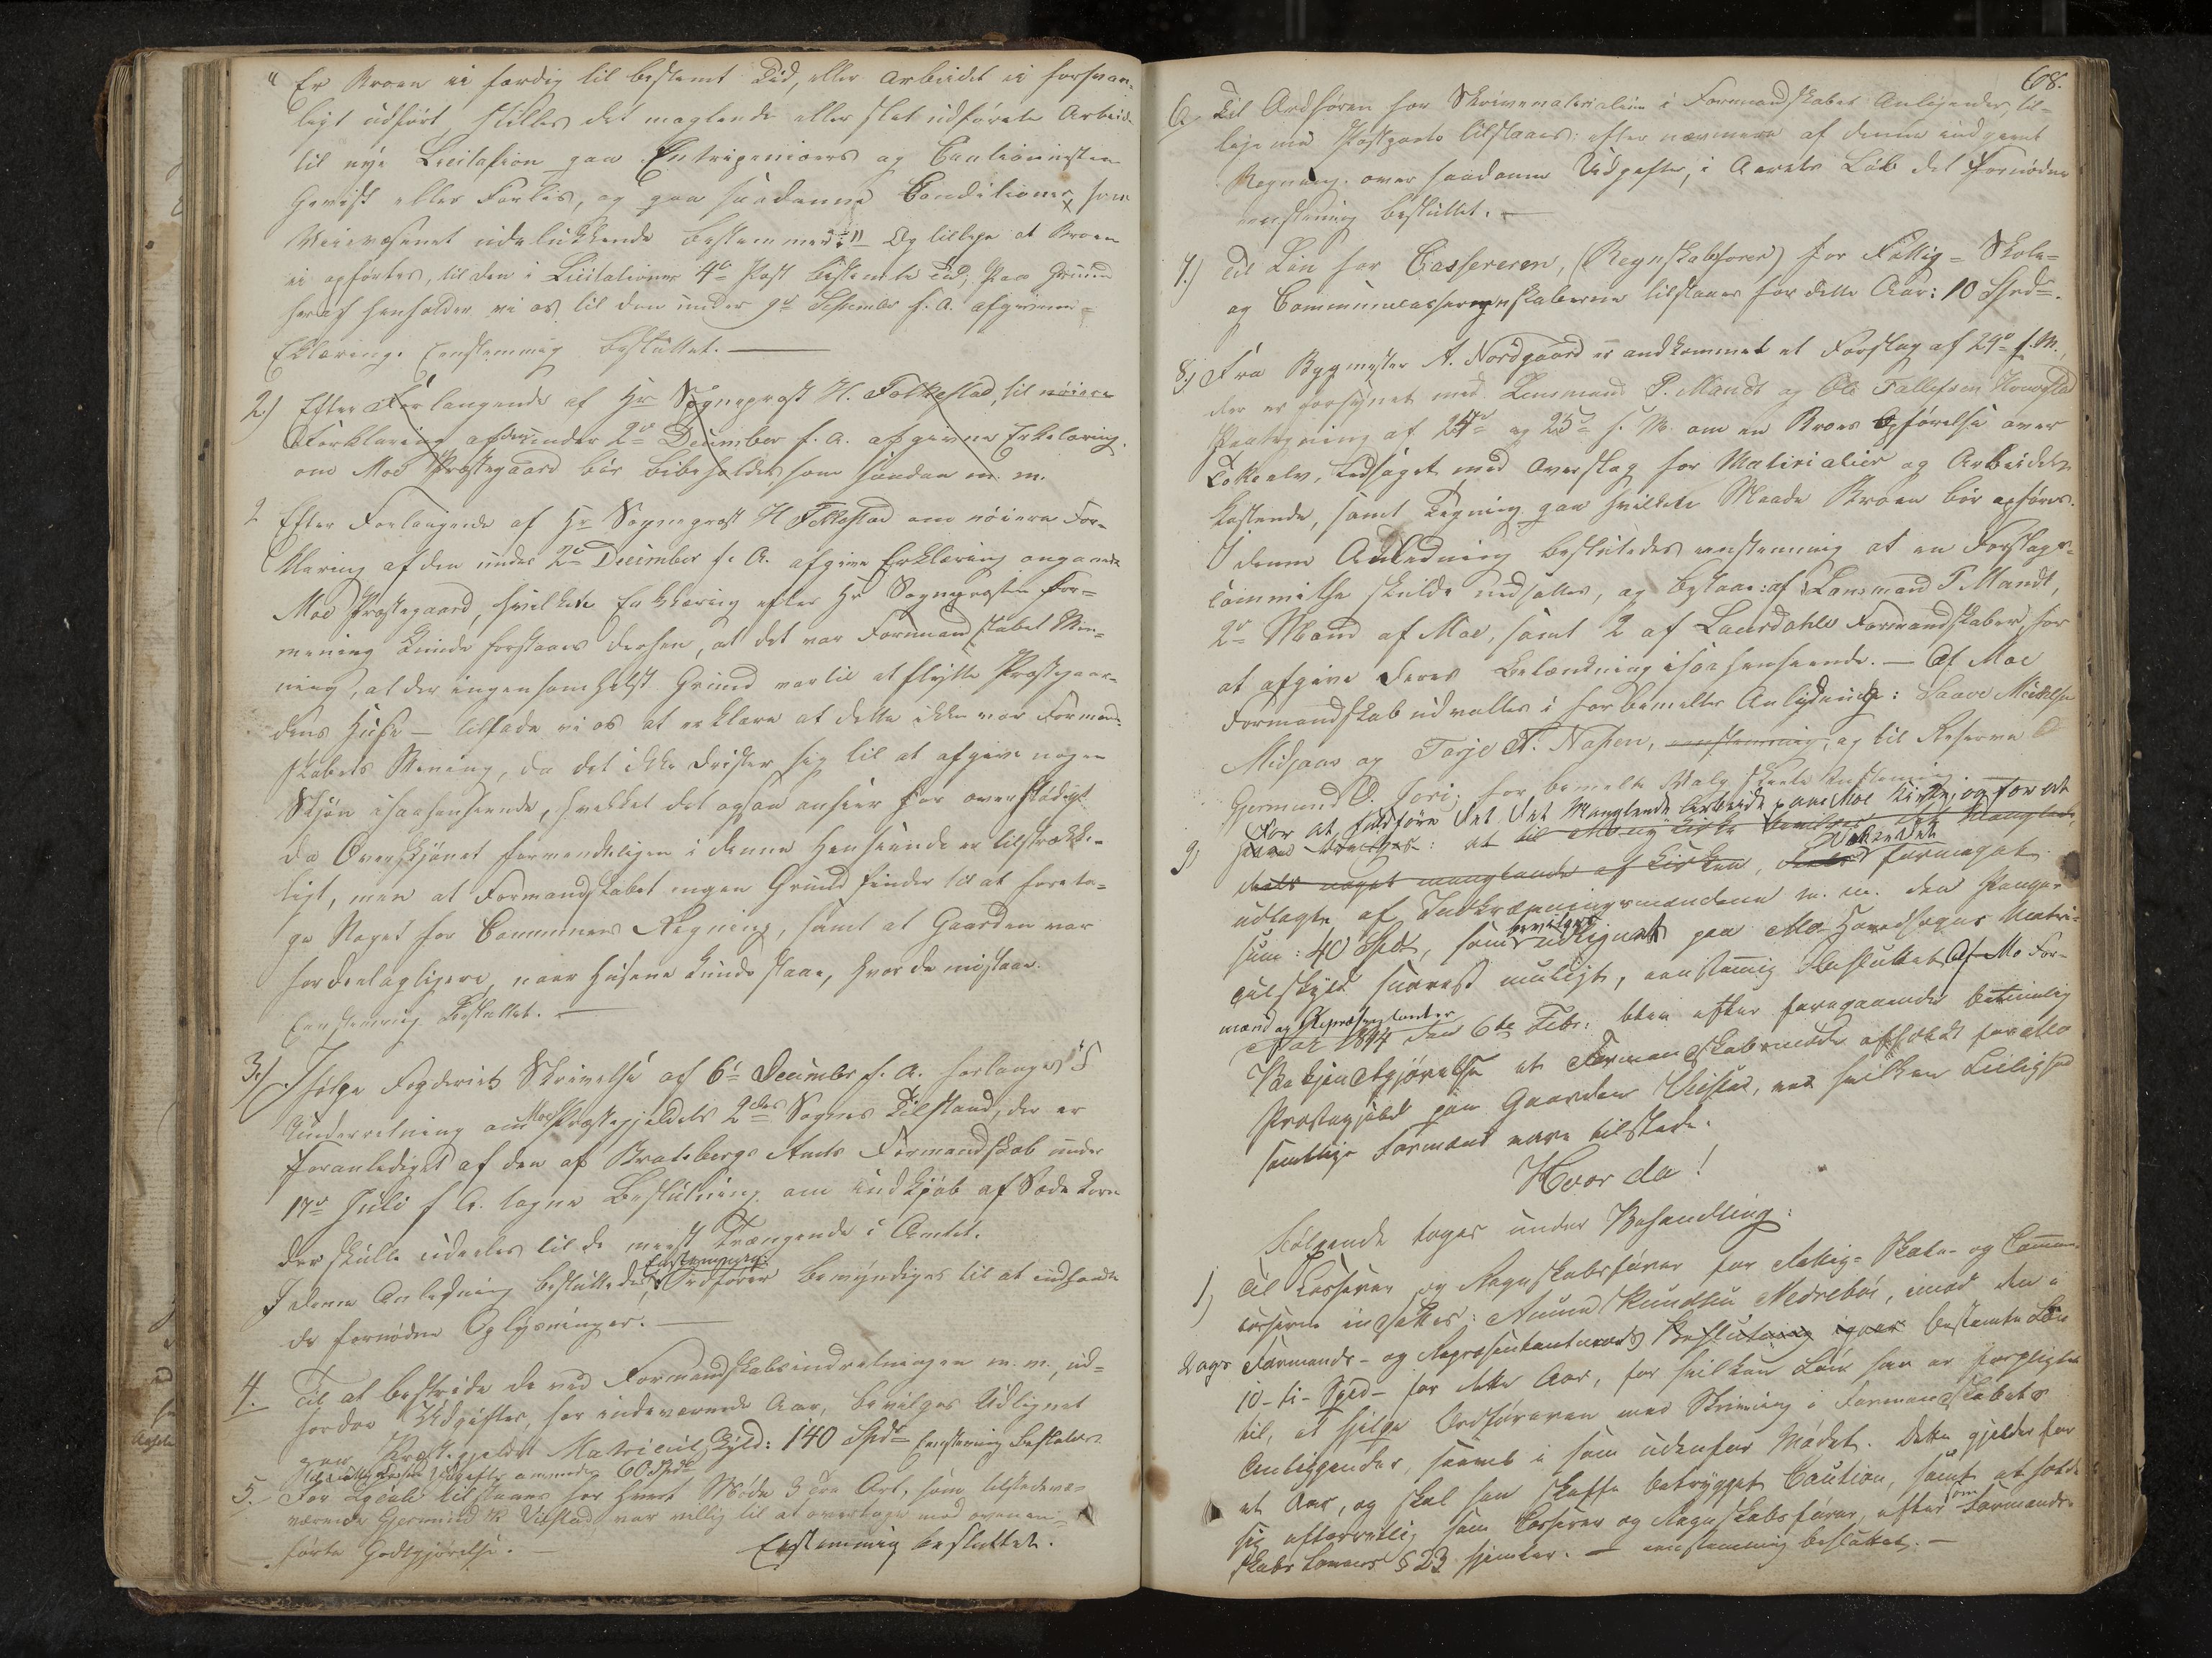 " Er Broen ei færdig til bestemt Tid, eller Arbeidet ei forsvar-
ligt udført, stilles det maglende eller slet udførete Arbeide
til nye Licitasion paa Entreprenioers og Cautionisten
Gevist eller Forlis, og paa saadanne Conditioner som
Veivæsenet udelukkende bestemmer:" Og tillige at Broen
ei opførtes, til den i Licitationes 4de Post bestemte Tid; Paa Grund
heraf henholder vi os til den under 9de September f. A. afgivne
Erklæring. Eenstemmig besluttet. —
2.) Efter Forlangende af Hr Sogneprost H. Folkestad, til nøiere
Forklaring af den under 2de December f. A. afgivne Erkelæring.
om Moe Præstegaard bør bibeholdes som saadan m. m.
2 Efter Forlangende af Hr Sogneprost H Folkestad om nøiere For-
klaring af den under 2de December f. A. afgivne Erklæring angaaende
Moe Præstegaard, hvilken Erklæring efter Hr Sogneprosten For-
mening kunde forstaaes derhen, at det var Formandskabet Me-
ning, at der ingensomhelst Grund var til at flytte Præstegaar-
dens Huse — tillade vi os at erklære at dette ikke var Formand-
skabets Mening, da det ikke drister sig til at afgive nogen
Skjøn isaahenseende, hvilket det ogsaa anseer for overflødigt
da Overskjønet formendtligen i denne Henseende er tilstrække-
ligt, men at Formandskabet ingen Grund finder til at foreta-
ge Noget for Communens Regning, samt at Gaarden var
fordeelagtigere, naar Husene kunde staae, hvor de nustaar.
Eenstemmig Besluttet. —
3.) Ifølge Fogderiets Skrivelse af 6te December f. A. forlanges
Underretning om Moe Præstegjeldets 2des Sognes Tilstand, der er
foranlediget af den af Bratsbergs Amts Formandskab under
17de Juli f A. tagne Beslutning om indkjøb af Sæde korn
der skulle uddeles til de meest Trængende i Amtet.
Eenstemmig:
I denne Anledning besluttedes Ordfører bemyndiges til at indhente
de fornødne Oplysninger. —
4. Til at bestride de ved Formandskabsindretningen m. m., ud-
fordre Udgifter, for indeværende Aar, bevilges Udlignet
paa Præstegjeldets Matriculskyld: 140 Spd Eenstemmig besluttes
60 Spd
5. For Locale tilstaaes for hvert Møde 3 Ort, som tilstedevæ-
rende Gjermund Vistad var villig til at overtage med ovenan-
førte Godtgjørelse. — Enstemmig besluttet.
68.
6. Til Ordføren for Skrivematerialier i Formandskabet Anligender, til-
lige med Postporto tilstaaes: efter nærmere af denne indgivet
Regning. over saadanne Udgifter, i Aarets Løb det Fornødne
eenstemig besluttet. —
7.) Til Løn for Cassereren, (Regnskabsfører) for Fattig- Skole-
og Communecasseregnskaberne tilstaaes for dette Aar: 10 Spd.
8.) Fra Bygmester A. Nordgaard er andkommet et Forslag af 29de f. M.,
der er forsynet med Lensmand P. Mandt og Ole Tallefsen
Paategning af 24de og 25de f. M. om en Broes Opførelse over
Tokeelv, ledsaget med Overslag for Materialier og Arbeidets
kostende, samt Tegning paa hvilken Maade Broen bør opføres.
I denne Anledning besluttedes eenstemmig at en Forslags-
committe skulde nedsættes, og bestaae: af Lensmand P. Mandt,
2de Mand af Moe, samt 2 af Laurdahls Formandskaber, for
at afgive deres Betænkning isaahenseende. — Af Moe
Formandskab udvalltes i forbemelte Anligende: Saave
Midjaas og Tarje A. Napen, eenstemmig, og til Reserve
Gjermund O. Jori; for bemelte Valg skeete Eenstemig
9) For at fuldføre det Manglende Arbeide paa Moe Kirke, og for at
udlagte af Indkræveringsmændene m. m. den Penge-
sum: 40 Spd, som bevilges udlignet paa Mo Hovedsogns Matri-
culskyld snarest muligt, eenstemmig Besluttet Af Mo For-
mænd og Repræsentanter
Aar 1844 den 6te Febr: blev efter foregaaende betimelig
Bekjendtgjørelse et Formandskabsmøde afholdt for Mo
Præstegjeld paa Gaarden Vistad, ved hvilken Leilighed
samtlige Formænd vare tilstede.
Hvor da!
Følgende toges under Behandling:
1) Til Casserer og Regnskabsfører for Fattig- Skole- og Commu-
casserne indsattes: Aanund Knudsen Nedrebøe, imod den i
Dags Formands- og Repræsentantmøde Beslutning bestemte Løn
10- ti- Spd- for dette Aar, for hvilken Løn han er forpligtet
til, at hjelpe Ordføreren med Skrivning i Formandskabets
Anliggender, saavel i som udenfor Mødet. Dette gjelder for
et Aar, og skal han skaffe betrygget Caution, samt at holde
sig efterrettelig som Casserer og Regnskabsfører, efter som Formands-
skabs Lovens § 23 hjemler. — eenstemmig besluttet. —